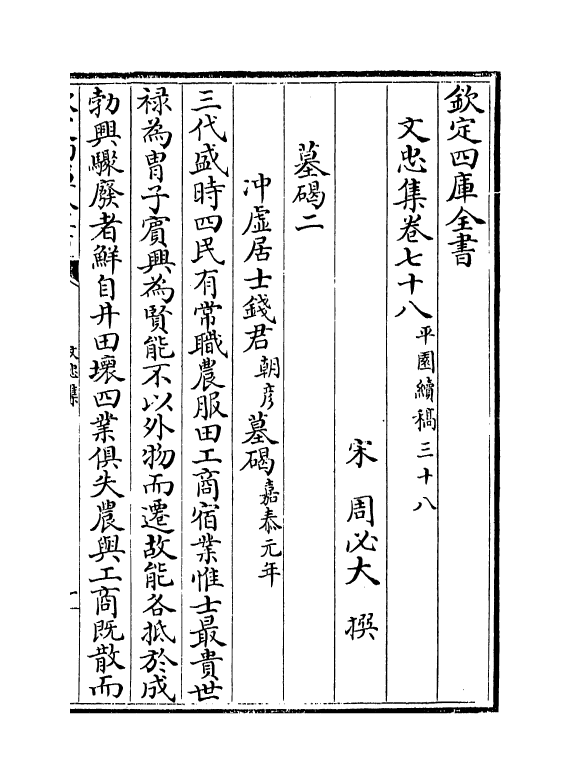 欽定四庫全書
文忠集卷七十八 平園續稿三十八
宋 周必大 撰
墓碣二
冲虛居士錢君朝彦墓碣嘉泰元年
三代盛時四民有常職農服田工商宿業惟士最貴世
禄為胄子賓興為賢能不以外物而遷故能各抵於成
勃興驟廢者鮮自井田壞四業俱失農與工商既散而
文忠集